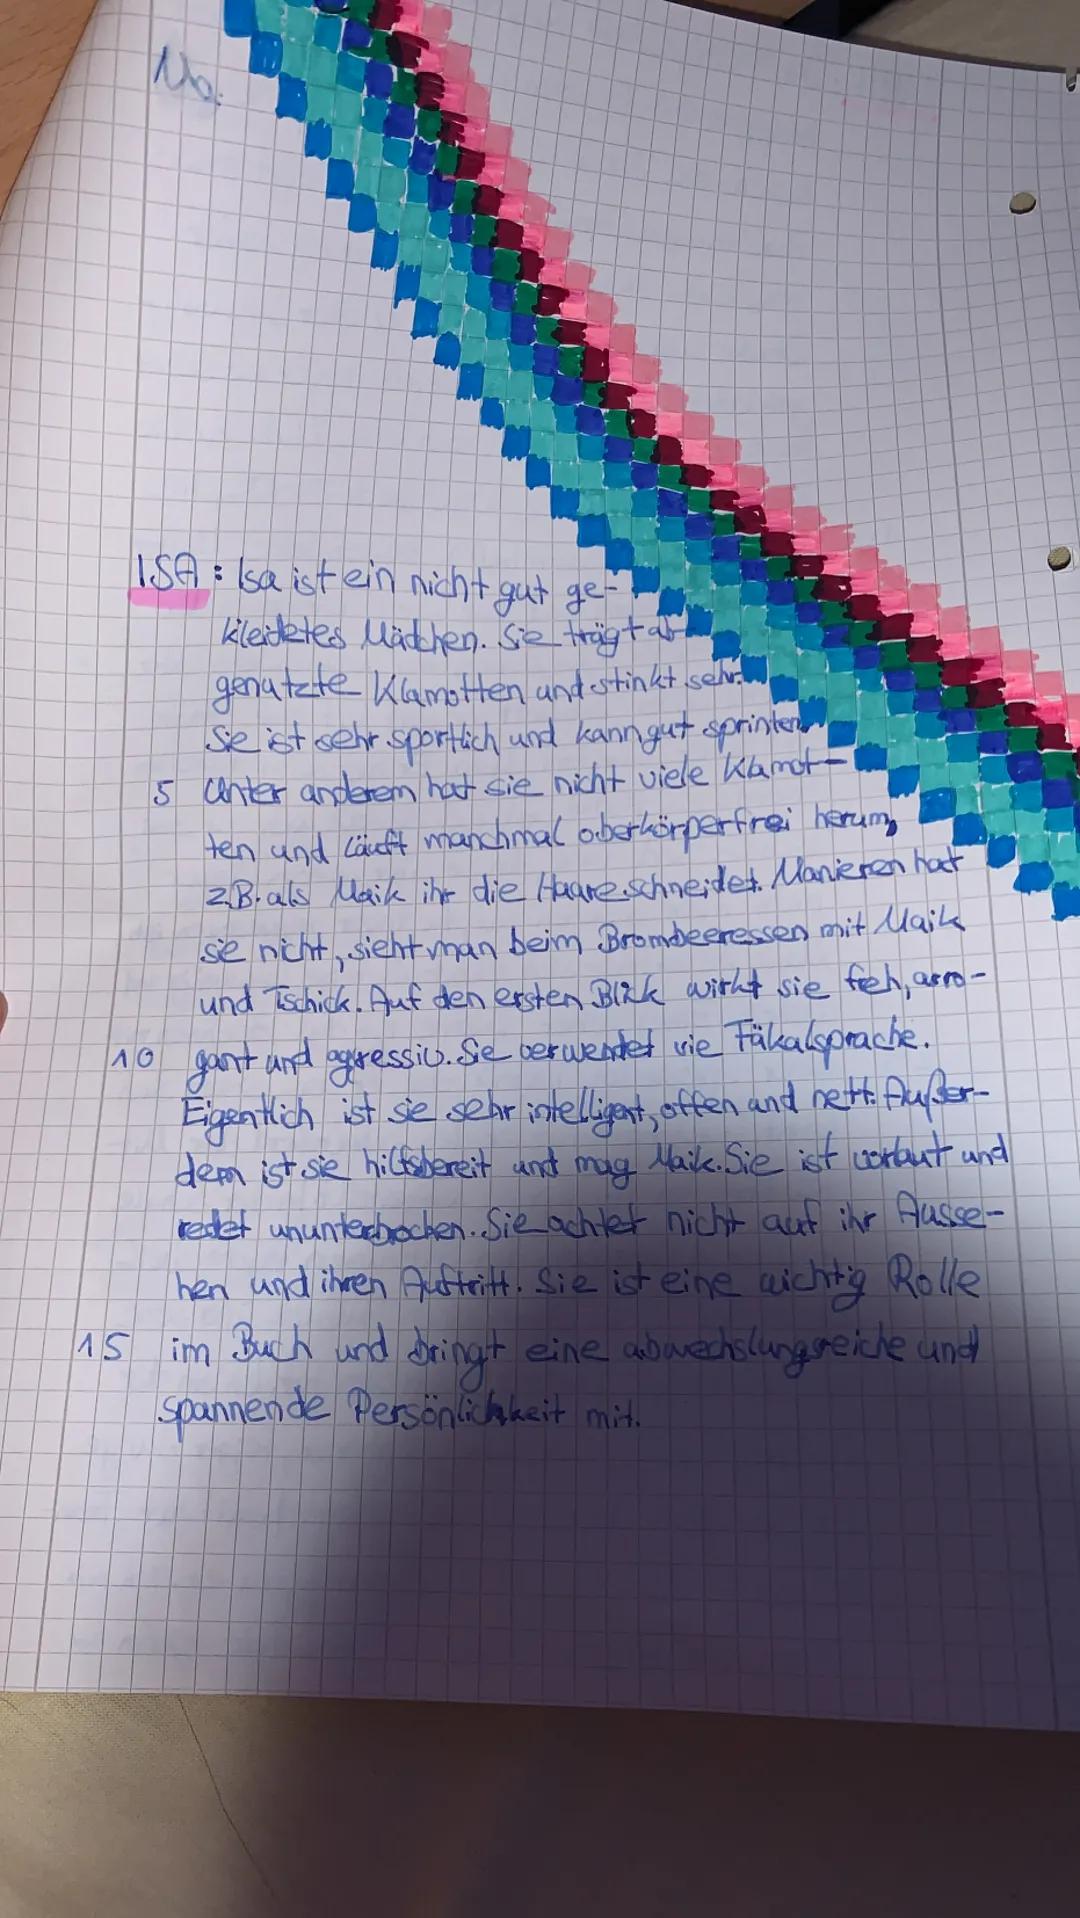 No.
ISA: Isa ist ein nicht gut ge-
kleidetes Mädchen. Sie trägt ab-
genutzte Klamotten und stinkt sehr.
Sie ist sehr sportlich und kann gut sprinten.
5 Unter anderem hat sie nicht viele Klamot-
ten und läuft manchmal oberkörperfrei herum,
z.B. als Maik ihr die Haare schneidet. Manieren hat
sie nicht, sieht man beim Brombeeressen mit Maik
und Tschick. Auf den ersten Blick wirkt sie freh, arro-
10 gant und aggressiv. Sie verwendet vie Fäkalsprache.
Eigentlich ist sie sehr intelligent, offen und nett. Außer-
dem ist sie hilfsbereit und mag Maik. Sie ist vorlaut und
redet ununterbrochen. Sie achtet nicht auf ihr Ausse-
hen und ihren Auftritt. Sie ist eine wichtig Rolle
15 im Buch und bringt eine abwechslungsreiche und
spannende Persönlichkeit mit.